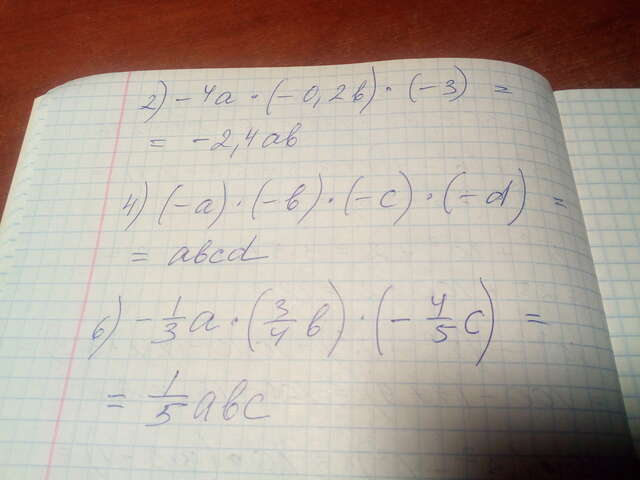 2) -4a · (-0,2b) · (-3) =
= -2,4ab
4) (-a) · (-b) · (-c) · (-d) =
= abcd
6) -1/3 a · (3/4 b) · (-4/5 c) =
= 1/5 abc